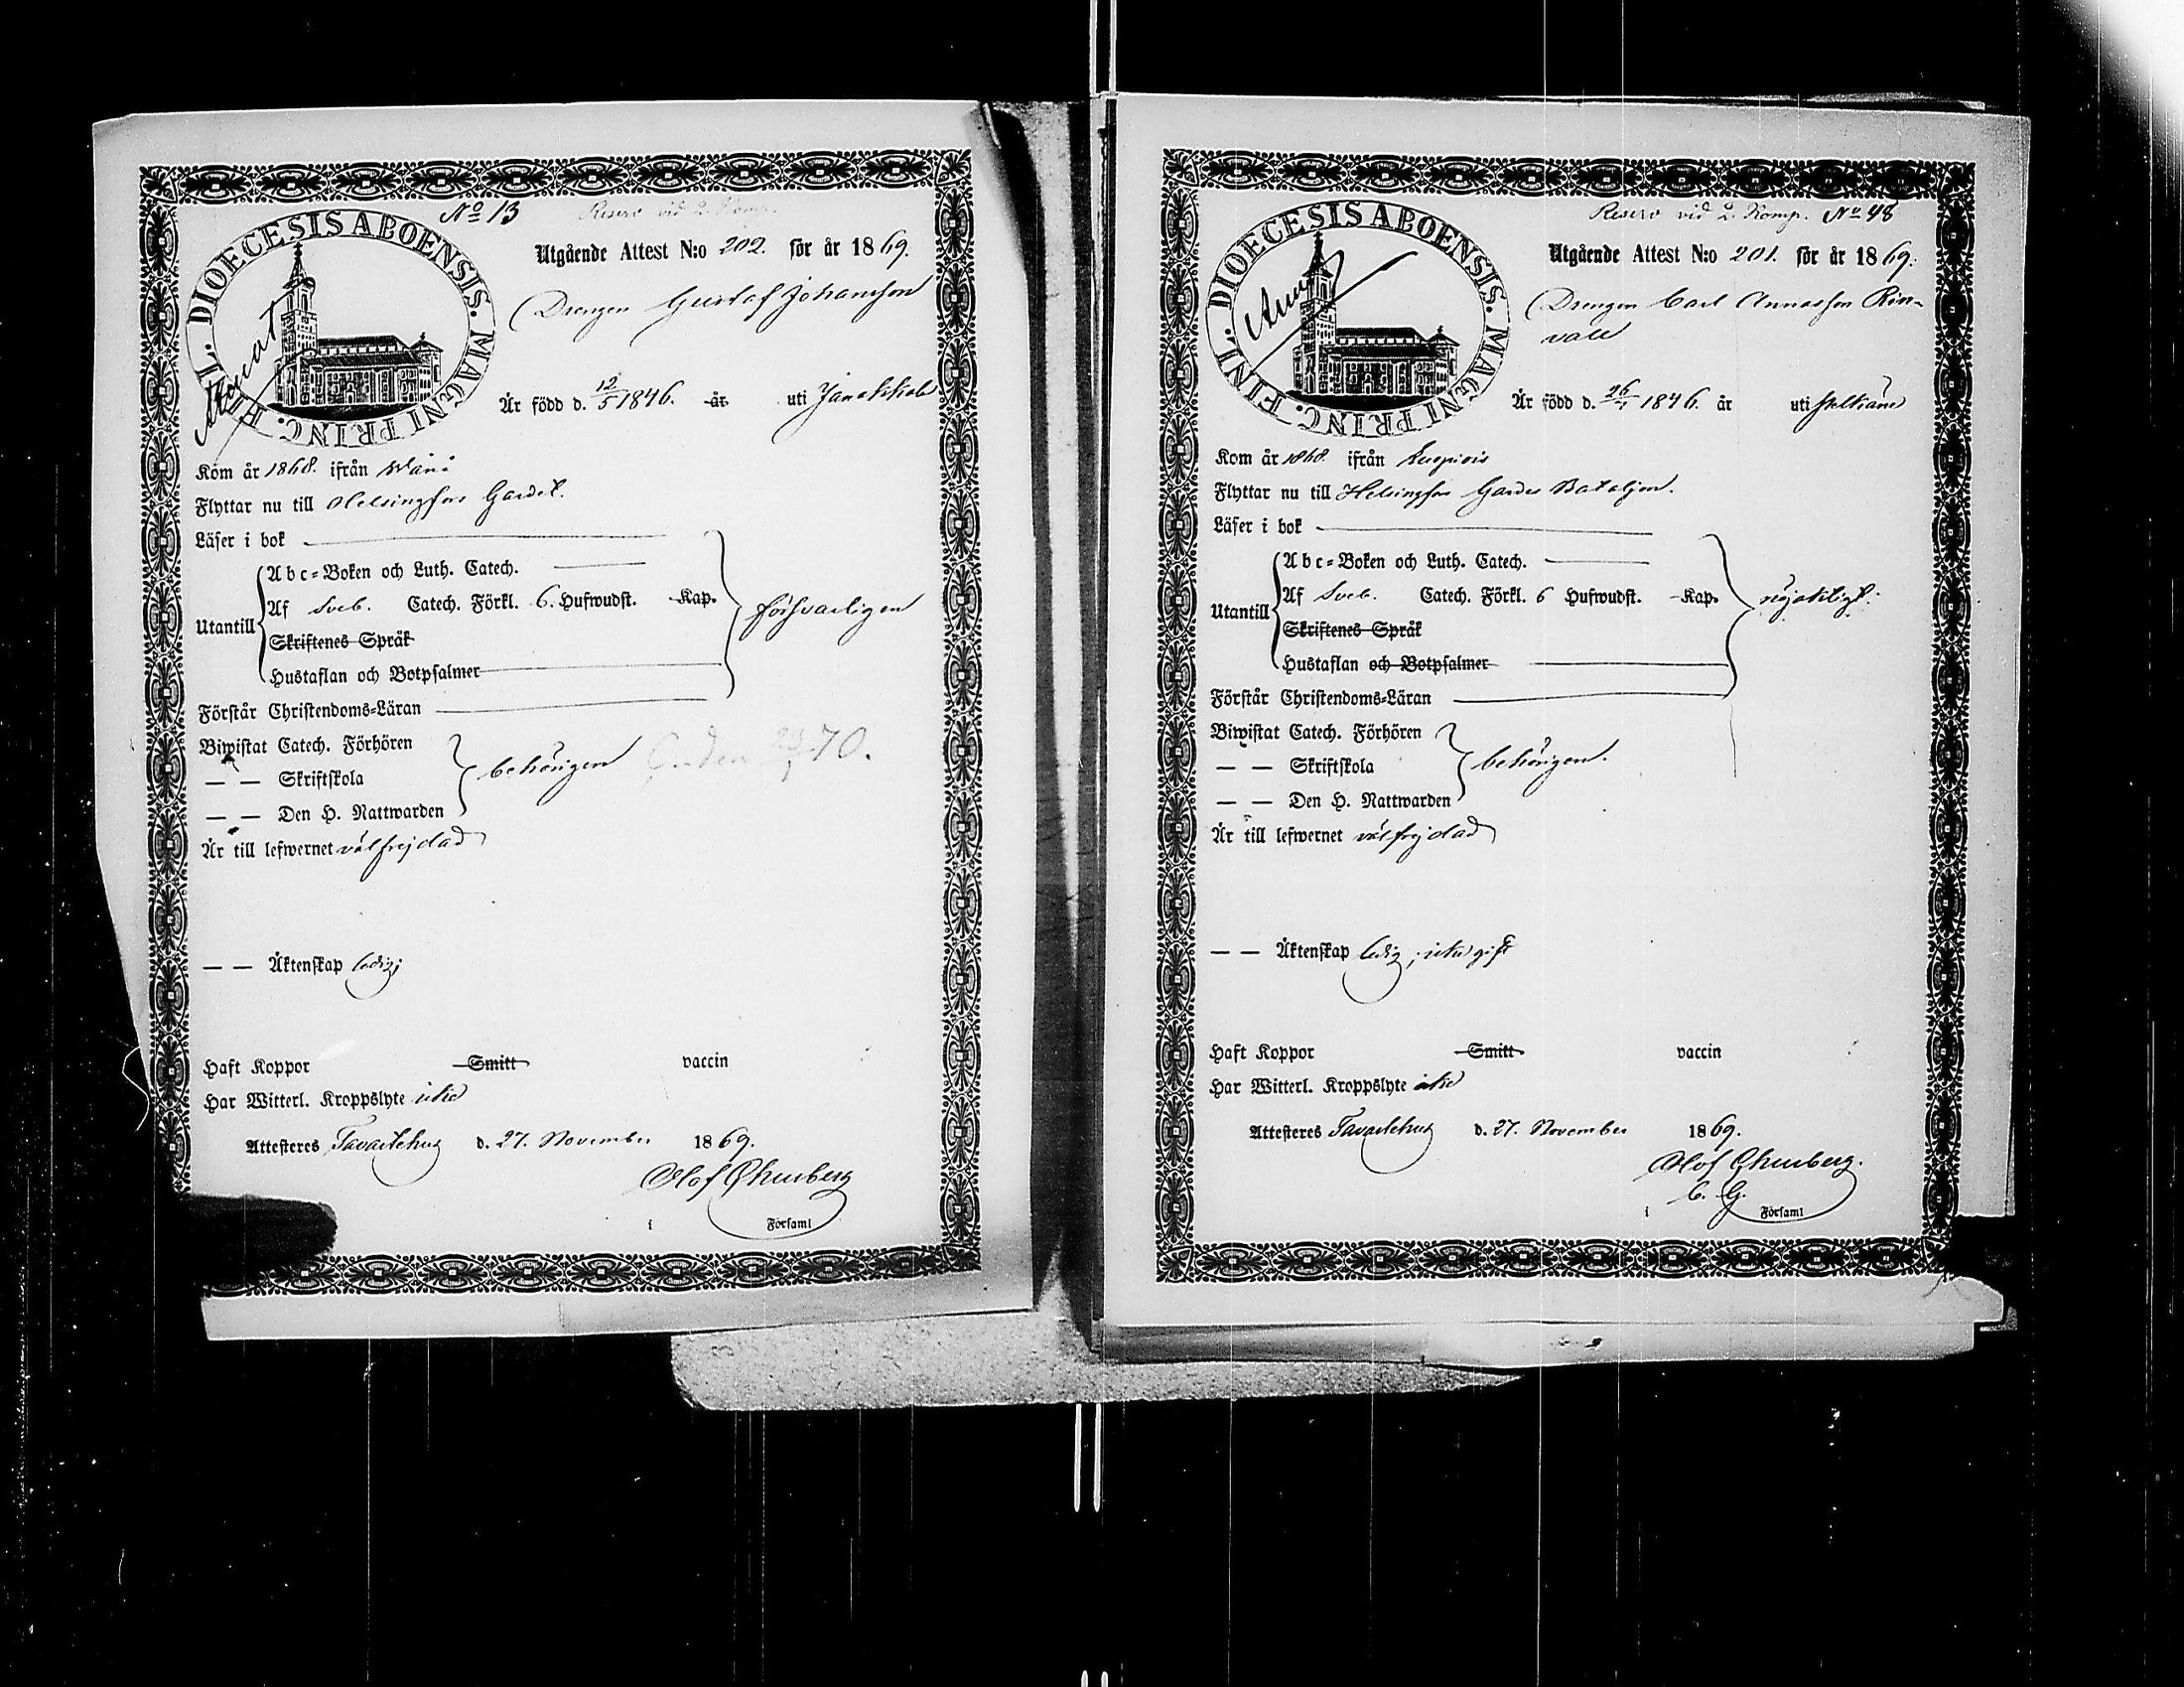 No 13 Reserv vid 2. Komp.
DIOECESIS ABOENSIS. MAGNI PRINC. FINL.
Utgående Attest N:o 202. för år 1869.
Drengen Gustaf Johansson
Är född d. 12/5 1846. år uti Janakkala
Kom år 1868. ifrån Wånå
Flyttar nu till Helsingfors Gardet.
Läser i bok
Abc-Boken och Luth. Catech.
Utantill Af Sveb. Catech. Förkl. 6. Hufwudst. Kap. försvarligen
Skriftenes Språk
Hustaflan och Botpsalmer
Förstår Christendoms-Läran
Biwistat Catech. Förhören
— — Skriftskola behörigen 70.
— — Den H. Nattwarden
Är till lefwernet välfrejdad
— — Äktenskap ledig;
Haft Koppor Smitt vaccin
Har Witterl. Kroppslyte icke
Attesteras Tavastehus d. 27. November 1869.
Olof
i Församl
Reserv vid 2. Komp. No 48
DIOECESIS ABOENSIS. MAGNI PRINC. FINL.
Utgående Attest N:o 201. för år 1869.
Drengen Carl Annasson Rin-
vall
Är född d. 26/1 1846. år uti
Kom år 1868. ifrån Kuopio
Flyttar nu till Helsingfors Gardes Bataljon.
Läser i bok
Abc-Boken och Luth. Catech.
Utantill Af Sveb. Catech. Förkl. 6 Hufwudst. Kap. nöjaktigt.
Skriftenes Språk
Hustaflan och Botpsalmer
Förstår Christendoms-Läran
Biwistat Catech. Förhören
— — Skriftskola behörigen.
— — Den H. Nattwarden
Är till lefwernet välfrejdad
— — Äktenskap ledig; icke gift
Haft Koppor Smitt vaccin
Har Witterl. Kroppslyte icke
Attesteras Tavastehus d. 27. November 1869.
Olof
C. G.
i Församl